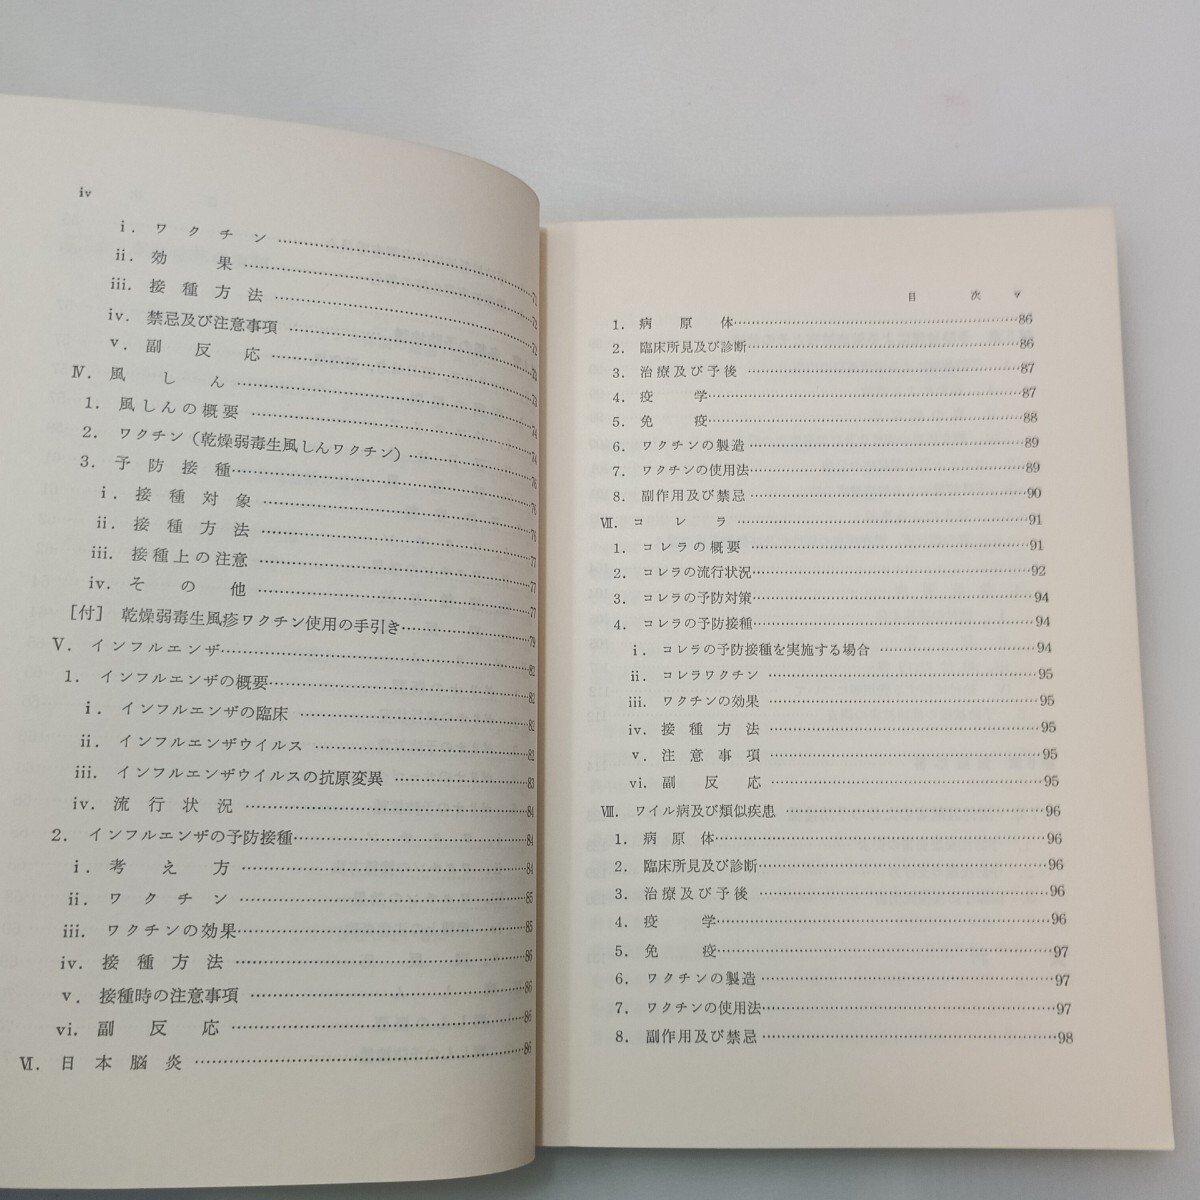 iv
i. ワクチン……71
ii. 効果……72
iii. 接種方法……72
iv. 禁忌及び注意事項……72
v. 副反応……73
Ⅳ. 風しん……73
1. 風しんの概要……74
2. ワクチン(乾燥弱毒生風しんワクチン)……74
3. 予防接種……76
i. 接種対象……76
ii. 接種方法……76
iii. 接種上の注意……77
iv. その他……77
[付] 乾燥弱毒生風疹ワクチン使用の手引き……79
Ⅴ. インフルエンザ……82
1. インフルエンザの概要……82
i. インフルエンザの臨床……82
ii. インフルエンザウイルス……82
iii. インフルエンザウイルスの抗原変異……83
iv. 流行状況……84
2. インフルエンザの予防接種……84
i. 考え方……84
ii. ワクチン……85
iii. ワクチンの効果……85
iv. 接種方法……86
v. 接種時の注意事項……86
vi. 副反応……86
Ⅵ. 日本脳炎……86
目次 v
1. 病原体……86
2. 臨床所見及び診断……86
3. 治療及び予後……87
4. 疫学……87
5. 免疫……88
6. ワクチンの製造……89
7. ワクチンの使用法……89
8. 副作用及び禁忌……90
Ⅶ. コレラ……91
1. コレラの概要……91
2. コレラの流行状況……92
3. コレラの予防対策……94
4. コレラの予防接種……94
i. コレラの予防接種を実施する場合……94
ii. コレラワクチン……95
iii. ワクチンの効果……95
iv. 接種方法……95
v. 注意事項……95
vi. 副反応……95
Ⅷ. ワイル病及び類似疾患……96
1. 病原体……96
2. 臨床所見及び診断……96
3. 治療及び予後……96
4. 疫学……96
5. 免疫……97
6. ワクチンの製造……97
7. ワクチンの使用法……97
8. 副作用及び禁忌……98